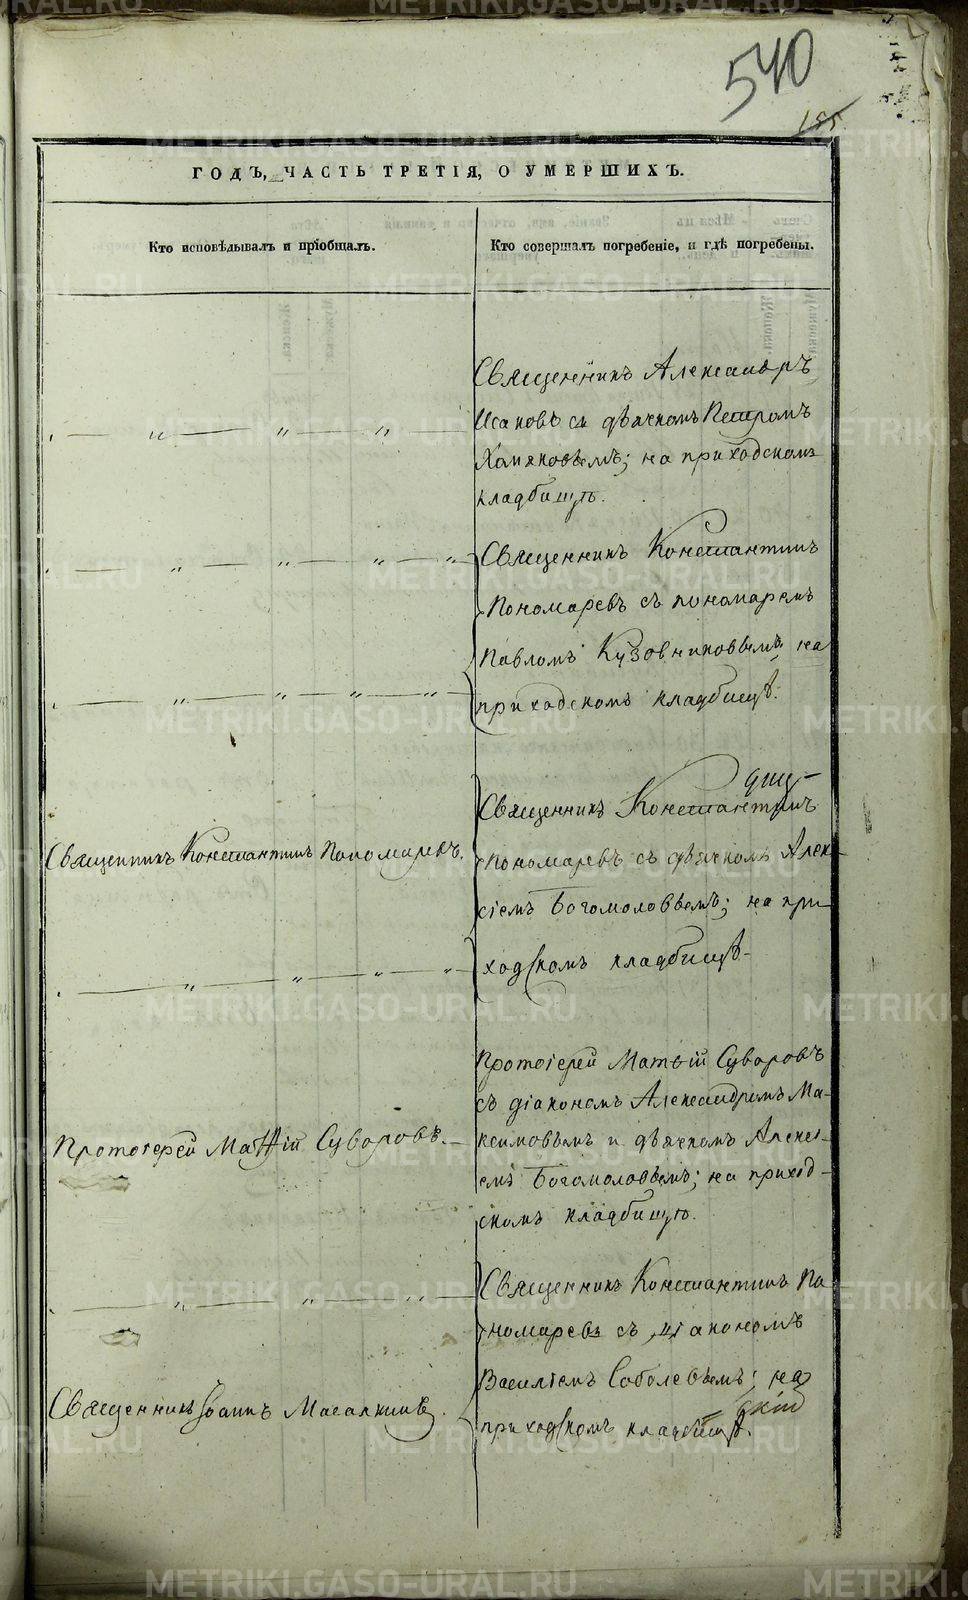 540
185
ГОДЪ, ЧАСТЬ ТРЕТІЯ, О УМЕРШИХЪ.
Кто исповѣдывалъ и пріобщалъ.
Кто совершалъ погребеніе, и гдѣ погребены.
Священникъ Александръ
Исаковъ съ дьячкомъ Петромъ
Хомяковымъ; на приходскомъ
кладбищѣ.
Священникъ Константинъ
Пономаревъ съ пономаремъ
Павломъ Кузовниковымъ на
приходскомъ кладбищѣ.
Священникъ Константинъ
Священникъ Константинъ Пономаревъ.
Пономаревъ съ дьячкомъ Алек-
сіемъ Богомоловымъ; на при-
ходскомъ кладбищѣ.
Протоіерей Матѳій Суворовъ.
Протоіерей Матвій Суворовъ
съ діакономъ Александромъ Ма-
ксимовымъ и дьячкомъ Алексі-
емъ Богомоловымъ; на приход-
скомъ кладбищѣ.
Священникъ Константинъ По
номаревъ съ діакономъ
Василіемъ Соболевымъ; на
приходскомъ кладбищѣ.
Священникъ Іоаннъ
METRIKI.GASO-URAL.RU